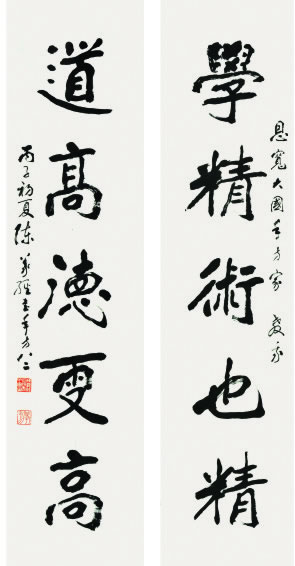 恩寬大國手方家 教示
學精術也精
道高德更高
丙子初夏陳 年方仁